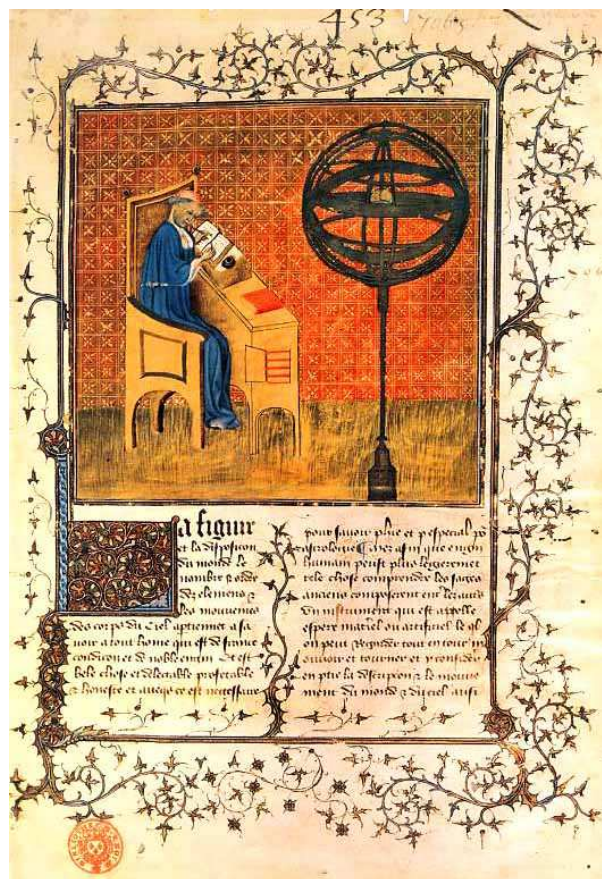 453
7065
La figure
et la disposicion
du monde le
nombre & ordre
des elemens &
les mouvemens
des corps du ciel aptienent a sa
voir a tout home qui est de franche
condicion et de noble engin Et est
bele chose et delectable profetable
& honeste et aveques ce est necessaire
pour savoir phie et p especial po
astrologie afin que engin
humain peust plus legierement
tele chose comprendre les sages
anciens composerent
un instrument qui est appelle
espere materiel ou artificiel le ql
on peut regarder tout en tour
mouvoir et tourner et y considerer
en ptie la descripcion & le mouve
ment du monde & du ciel aussi